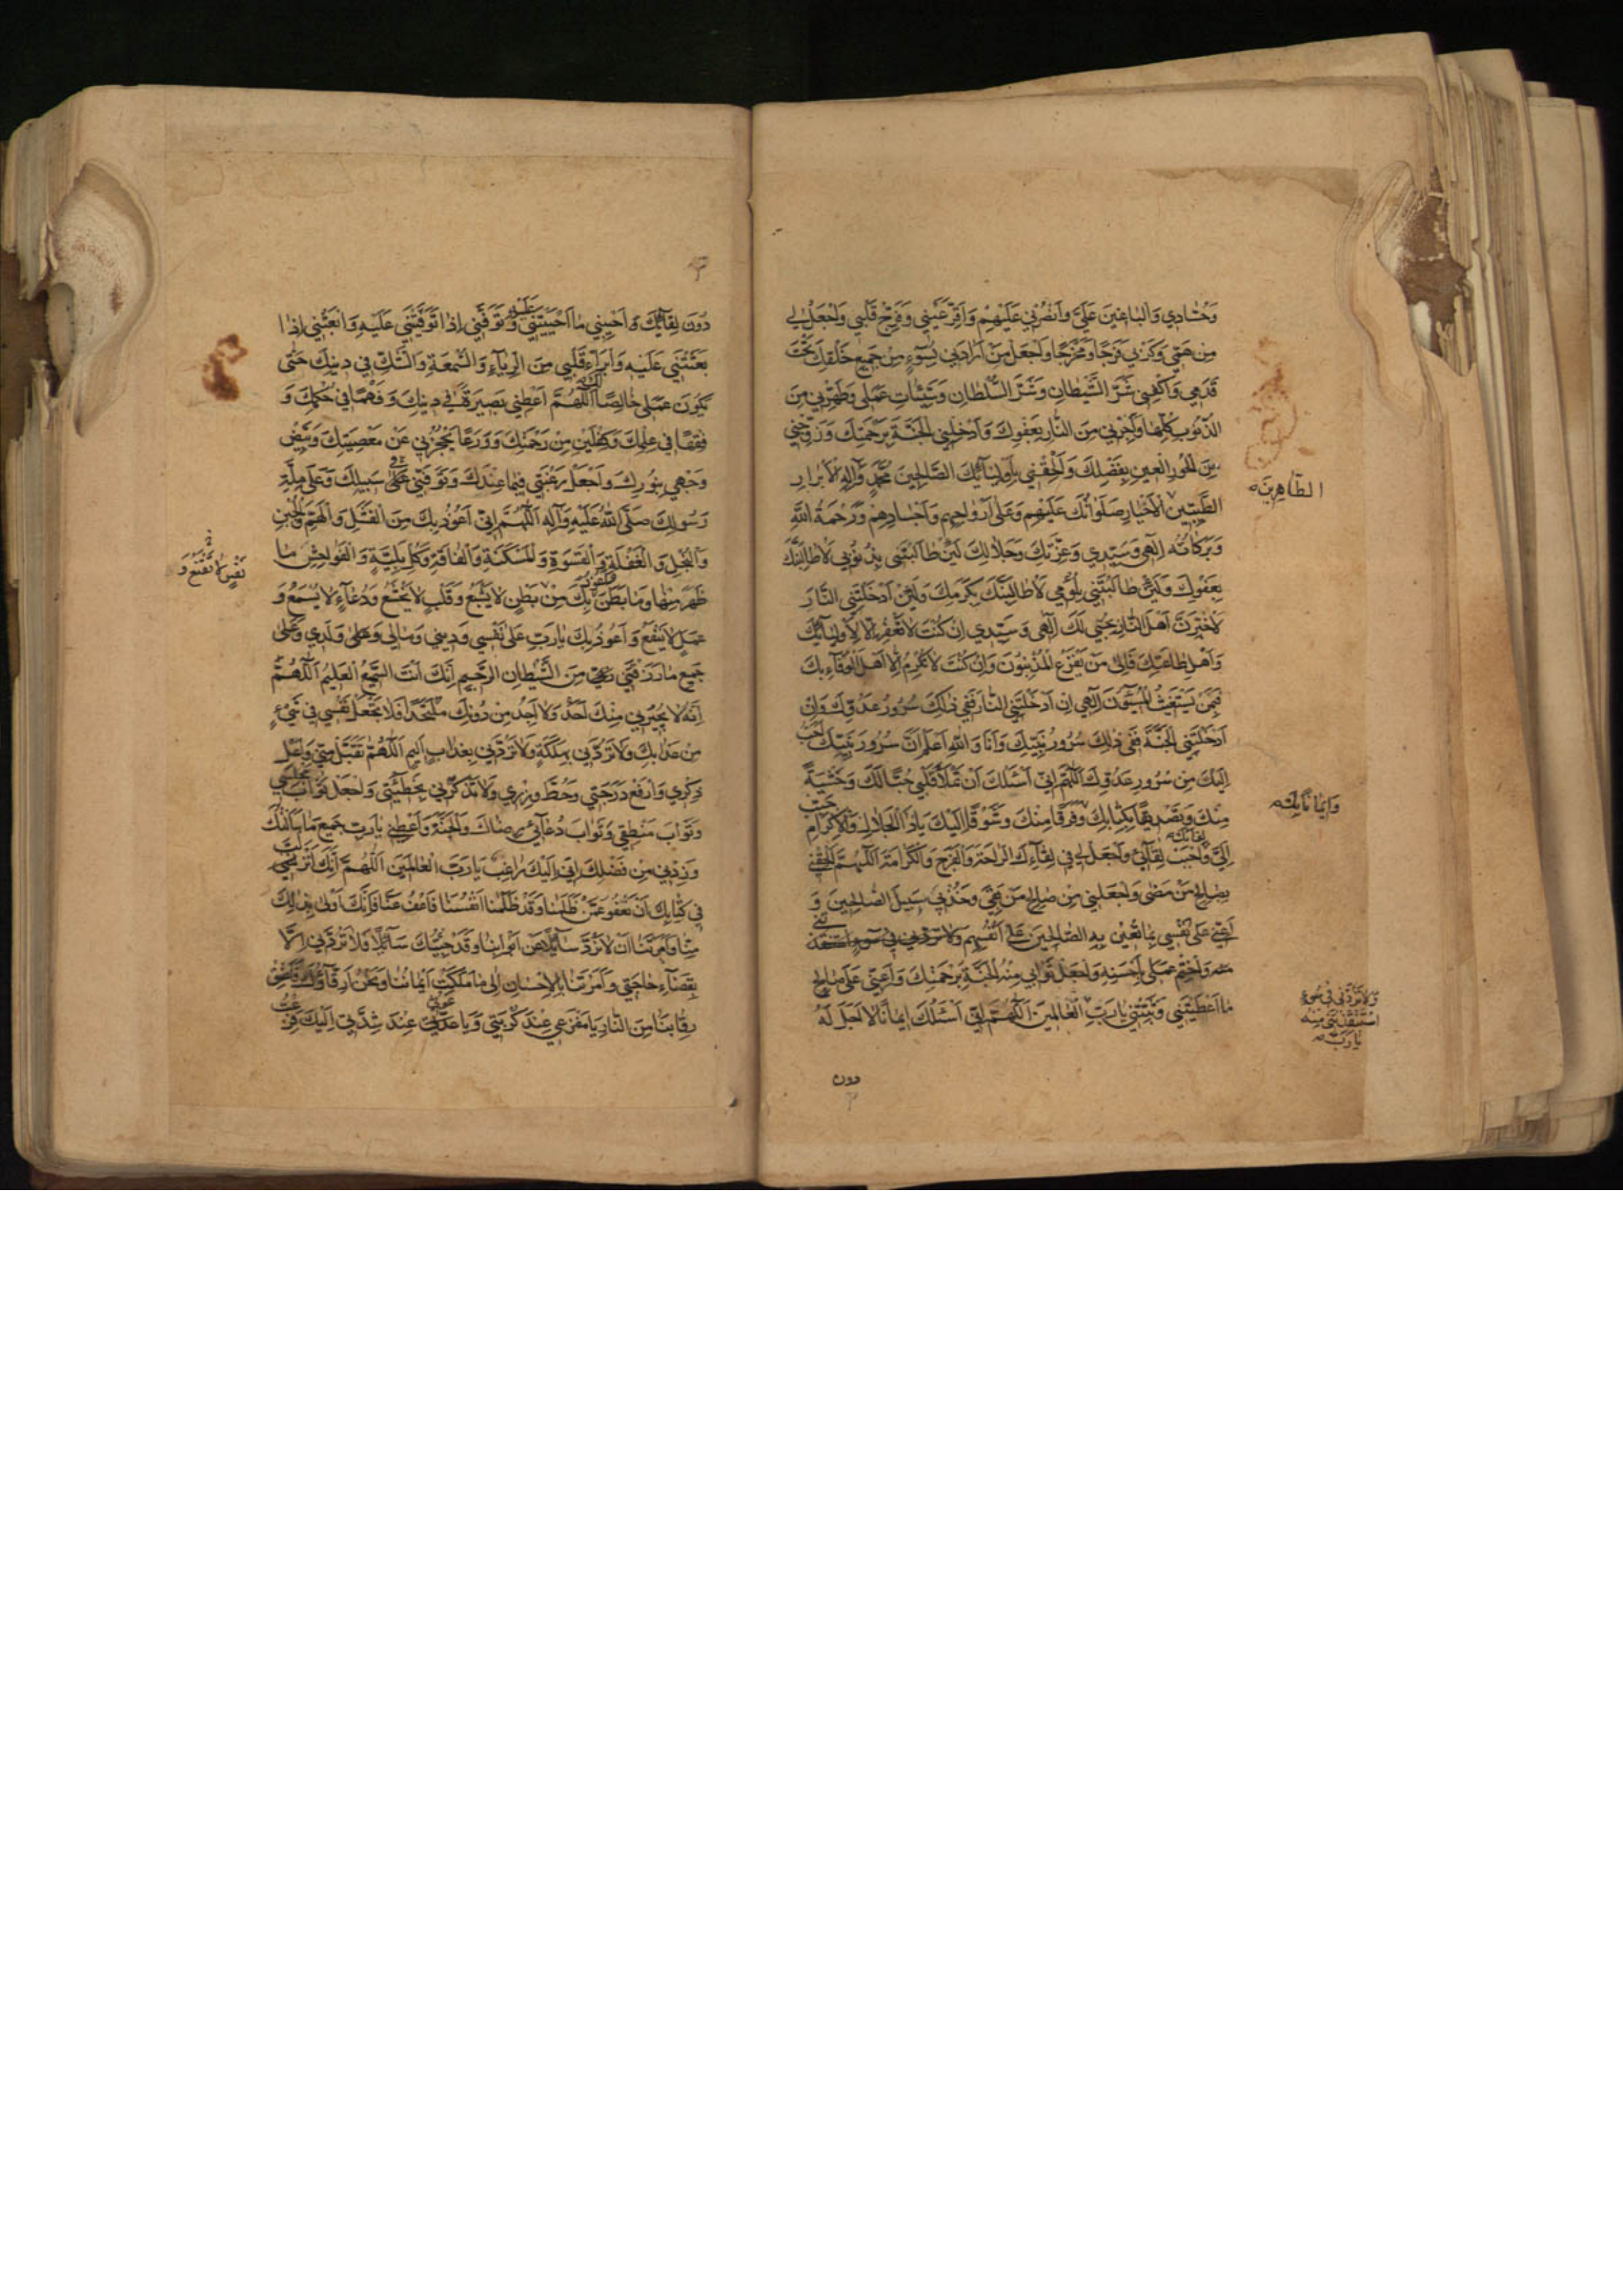 وَحُسّٰادِي وَالْبٰاغِينَ عَلَيَّ وَانْصُرْنِي عَلَيْهِمْ وَاَقِرَّ عَيْنِي وَفَرِّحْ قَلْبِي وَاجْعَلْ لِي
مِنْ هَمِّي وَكَرْبِي فَرَجًا وَمَخْرَجًا وَاجْعَلْ مَنْ اَرٰادَنِي بِسُوٓءٍ مِنْ جَمِيعِ خَلْقِكَ تَحْتَ
قَدَمِي وَاكْفِنِي شَرَّ الشَّيْطٰانِ وَشَرَّ السُّلْطٰانِ وَسَيِّئٰاتِ عَمَلِي وَطَهِّرْنِي مِنَ
الذُّنُوبِ كُلِّهٰا وَاَجِرْنِي مِنَ النّٰارِ بِعَفْوِكَ وَاَدْخِلْنِي الْجَنَّةَ بِرَحْمَتِكَ وَزَوِّجْنِي
مِنَ الْحُورِ الْعِينِ بِفَضْلِكَ وَاَلْحِقْنِي بِاَوْلِيٰآئِكَ الصّٰالِحِينَ مُحَمَّدٍ وَآلِهِ الْاَبْرٰارِ
الطّٰاهِرِينَ
الطَّيِّبِينَ الْاَخْيٰارِ صَلَوٰاتُكَ عَلَيْهِمْ وَعَلٰى اَرْوٰاحِهِمْ وَاَجْسٰادِهِمْ وَرَحْمَةُ اللّٰهِ
وَبَرَكٰاتُه اِلٰهِي وَسَيِّدِي وَعِزَّتِكَ وَجَلٰالِكَ لَئِنْ طٰالَبْتَنِي بِذُنُوبِي لَاُطٰالِبَنَّكَ
بِعَفْوِكَ وَلَئِنْ طٰالَبْتَنِي بِلُؤْمِي لَاُطٰالِبَنَّكَ بِكَرَمِكَ وَلَئِنْ اَدْخَلْتَنِي النّٰارَ
لَاُخْبِرَنَّ اَهْلَ النّٰارِ بِحُبِّي لَكَ اِلٰهِي وَسَيِّدِي اِنْ كُنْتَ لٰا تَغْفِرُ اِلّٰا لِاَوْلِيٰآئِكَ
وَاَهْلِ طٰاعَتِكَ فَاِلٰى مَنْ يَفْزَعُ الْمُذْنِبُونَ وَاِنْ كُنْتَ لٰا تُكْرِمُ اِلّٰا اَهْلَ الْوَفٰآءِ بِكَ
فَبِمَنْ يَسْتَغِيثُ الْمُسِيٓئُونَ اِلٰهِي اِنْ اَدْخَلْتَنِي النّٰارَ فَفِي ذٰلِكَ سُرُورُ عَدُوِّكَ وَاِنْ
اَدْخَلْتَنِي الْجَنَّةَ فَفِي ذٰلِكَ سُرُورُ نَبِيِّكَ وَاَنَا وَاللّٰهِ اَعْلَمُ اَنَّ سُرُورَ نَبِيِّكَ اَحَبُّ
اِلَيْكَ مِنْ سُرُورِ عَدُوِّكَ اَللّٰهُمَّ اِنِّي اَسْئَلُكَ اَنْ تَمْلَأَ قَلْبِي حُبًّا لَكَ وَخَشْيَةً
وَاِيمٰانًا بِكَ
مِنْكَ وَتَصْدِيقًا بِكِتٰابِكَ وَفَرَقًا مِنْكَ وَشَوْقًا اِلَيْكَ يٰا ذَا الْجَلٰالِ وَالْاِكْرٰامِ حَبِّبْ
لِقٰائَكَ
اِلَيَّ وَاَحْبِبْ لِقٰآئِي وَاجْعَلْ لِي فِي لِقٰآءِكَ الرّٰاحَةَ وَالْفَرَجَ وَالْكَرٰامَةَ اَللّٰهُمَّ اَلْحِقْنِي
بِصٰالِحِ مَنْ مَضٰى وَاجْعَلْنِي مِنْ صٰالِحِ مَنْ بَقِيَ وَخُذْ بِي سَبِيلَ الصّٰالِحِينَ وَ
اَعِنِّي عَلٰى نَفْسِي بِمٰا تُعِينُ بِهِ الصّٰالِحِينَ عَلٰى اَنْفُسِهِمْ وَلٰا تَرُدَّنِي فِي سُوٓءٍ استنقذتنی
منه وَاخْتِمْ عَمَلِي بِاَحْسَنِهِ وَاجْعَلْ ثَوٰابِي مِنْهُ الْجَنَّةَ بِرَحْمَتِكَ وَاَعِنِّي عَلٰى صٰالِحِ
وَلٰا تَرُدَّنِي فِي سُوٓءٍ
اسْتَنْقَذْتَنِي مِنْهُ
يٰا رَبِّ
مٰا اَعْطَيْتَنِي وَثَبِّتْنِي يٰا رَبِّ الْعٰالَمِينَ اَللّٰهُمَّ اِنِّي اَسْئَلُكَ اِيمٰانًا لٰا اَجَلَ لَهُ
دون
دُونَ لِقٰآئِكَ وَ اَحْيِنِي مٰا اَحْيَيْتَنِي عَلَيْهِ وَتَوَفَّنِي اِذٰا تَوَفَّيْتَنِي عَلَيْهِ وَابْعَثْنِي اِذٰا
بَعَثْتَنِي عَلَيْهِ وَاَبْرِاْ قَلْبِي مِنَ الرِّيٰآءِ وَالسُّمْعَةِ وَالشَّكِّ فِي دِينِكَ حَتّٰى
يَكُونَ عَمَلِي خٰالِصًا لَكَ اَللّٰهُمَّ اَعْطِنِي بَصِيرَةً فِي دِينِكَ وَفَهْمًا فِي حُكْمِكَ وَ
فِقْهًا فِي عِلْمِكَ وَكِفْلَيْنِ مِنْ رَحْمَتِكَ وَوَرَعًا يَحْجُزُنِي عَنْ مَعْصِيَتِكَ وَبَيِّضْ
وَجْهِي بِنُورِكَ وَاجْعَلْ رَغْبَتِي فِيمٰا عِنْدَكَ وَتَوَفَّنِي عَلٰى سَبِيلِكَ وَعَلٰى مِلَّةِ
رَسُولِكَ صَلَّى اللّٰهُ عَلَيْهِ وَآلِهِ اَللّٰهُمَّ اِنِّي اَعُوذُ بِكَ مِنَ الْفَشَلِ وَالْهَمِّ وَالْجُبْنِ
وَالْبُخْلِ وَالْغَفْلَةِ وَالْقَسْوَةِ وَالْمَسْكَنَةِ وَالْفٰاقَةِ وَكُلِّ بَلِيَّةٍ وَالْفَوٰاحِشِ مٰا
نَفْسٍ لٰا تَقْنَعُ وَ
ظَهَرَ مِنْهٰا وَمٰا بَطَنَ وَاَعُوذُ بِكَ مِنْ بَطْنٍ لٰا يَشْبَعُ وَقَلْبٍ لٰا يَخْشَعُ وَدُعٰآءٍ لٰا يُسْمَعُ وَ
عَمَلٍ لٰا يَنْفَعُ وَ اَعُوذُ بِكَ يٰا رَبِّ عَلٰى نَفْسِي وَدِينِي وَمٰالِي وَعَلٰى وَلَدِي وَعَلٰى
جَمِيعِ مٰا رَزَقْتَنِي مِنَ الشَّيْطٰانِ الرَّجِيمِ اِنَّكَ اَنْتَ السَّمِيعُ الْعَلِيمُ اَللّٰهُمَّ
اِنَّهُ لٰا يُجِيرُنِي مِنْكَ اَحَدٌ وَلٰا اَجِدُ مِنْ دُونِكَ مُلْتَحَدًا فَلٰا تَجْعَلْ نَفْسِي فِي شَيْءٍ
مِنْ عَذٰابِكَ وَلٰا تَرُدَّنِي بِهَلَكَةٍ وَلٰا تَرُدَّنِي بِعَذٰابٍ اَلِيمٍ اَللّٰهُمَّ تَقَبَّلْ مِنِّي وَاَعْلِ
ذِكْرِي وَارْفَعْ دَرَجَتِي وَحُطَّ وِزْرِي وَلٰا تَذْكُرْنِي بِخَطِيٓئَتِي وَاجْعَلْ ثَوٰابَ مَجْلِسِي
وَثَوٰابَ مَنْطِقِي وَثَوٰابَ دُعٰآئِي رِضٰاكَ وَالْجَنَّةَ وَاَعْطِنِي يٰا رَبِّ جَمِيعَ مٰا سَاَلْتُكَ
وَزِدْنِي مِنْ فَضْلِكَ اِنِّي اِلَيْكَ رٰاغِبٌ يٰا رَبَّ الْعٰالَمِينَ اَللّٰهُمَّ اِنَّكَ اَنْزَلْتَ
فِي كِتٰابِكَ اَنْ نَعْفُوَ عَمَّنْ ظَلَمَنٰا وَقَدْ ظَلَمْنٰا اَنْفُسَنٰا فَاعْفُ عَنّٰا فَاِنَّكَ اَوْلٰى بِذٰلِكَ
مِنّٰا وَاَمَرْتَنٰا اَنْ لٰا نَرُدَّ سٰآئِلًا عَنْ اَبْوٰابِنٰا وَقَدْ جِئْتُكَ سٰآئِلًا فَلٰا تَرُدَّنِي اِلّٰا
بِقَضٰآءِ حٰاجَتِي وَاَمَرْتَنٰا بِالْاِحْسٰانِ اِلٰى مٰا مَلَكَتْ اَيْمٰانُنٰا وَنَحْنُ اَرِقّٰآؤُكَ فَاَعْتِقْ
رِقٰابَنٰا مِنَ النّٰارِ يٰا مَفْزَعِي عِنْدَ كُرْبَتِي وَيٰا غَوْثِي عِنْدَ شِدَّتِي اِلَيْكَ فَزِعْتُ